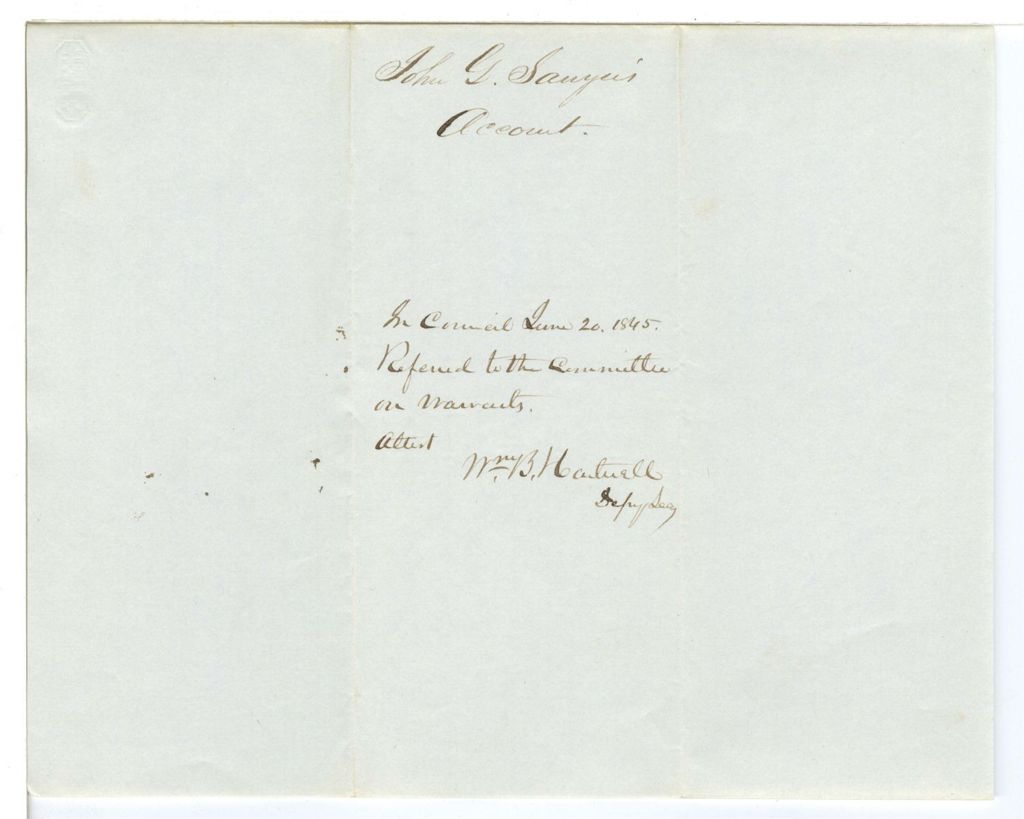 John G. Sawyer's
Account.
In Council June 20. 1845.
Referred to the Committee
on Warrants.
Attest
Wm. B. Hartwell
Depy Secy